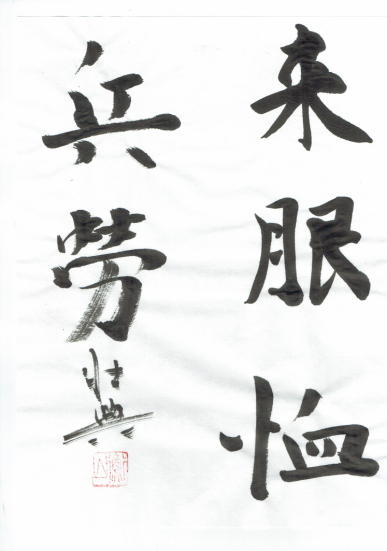 来服恤
兵勞